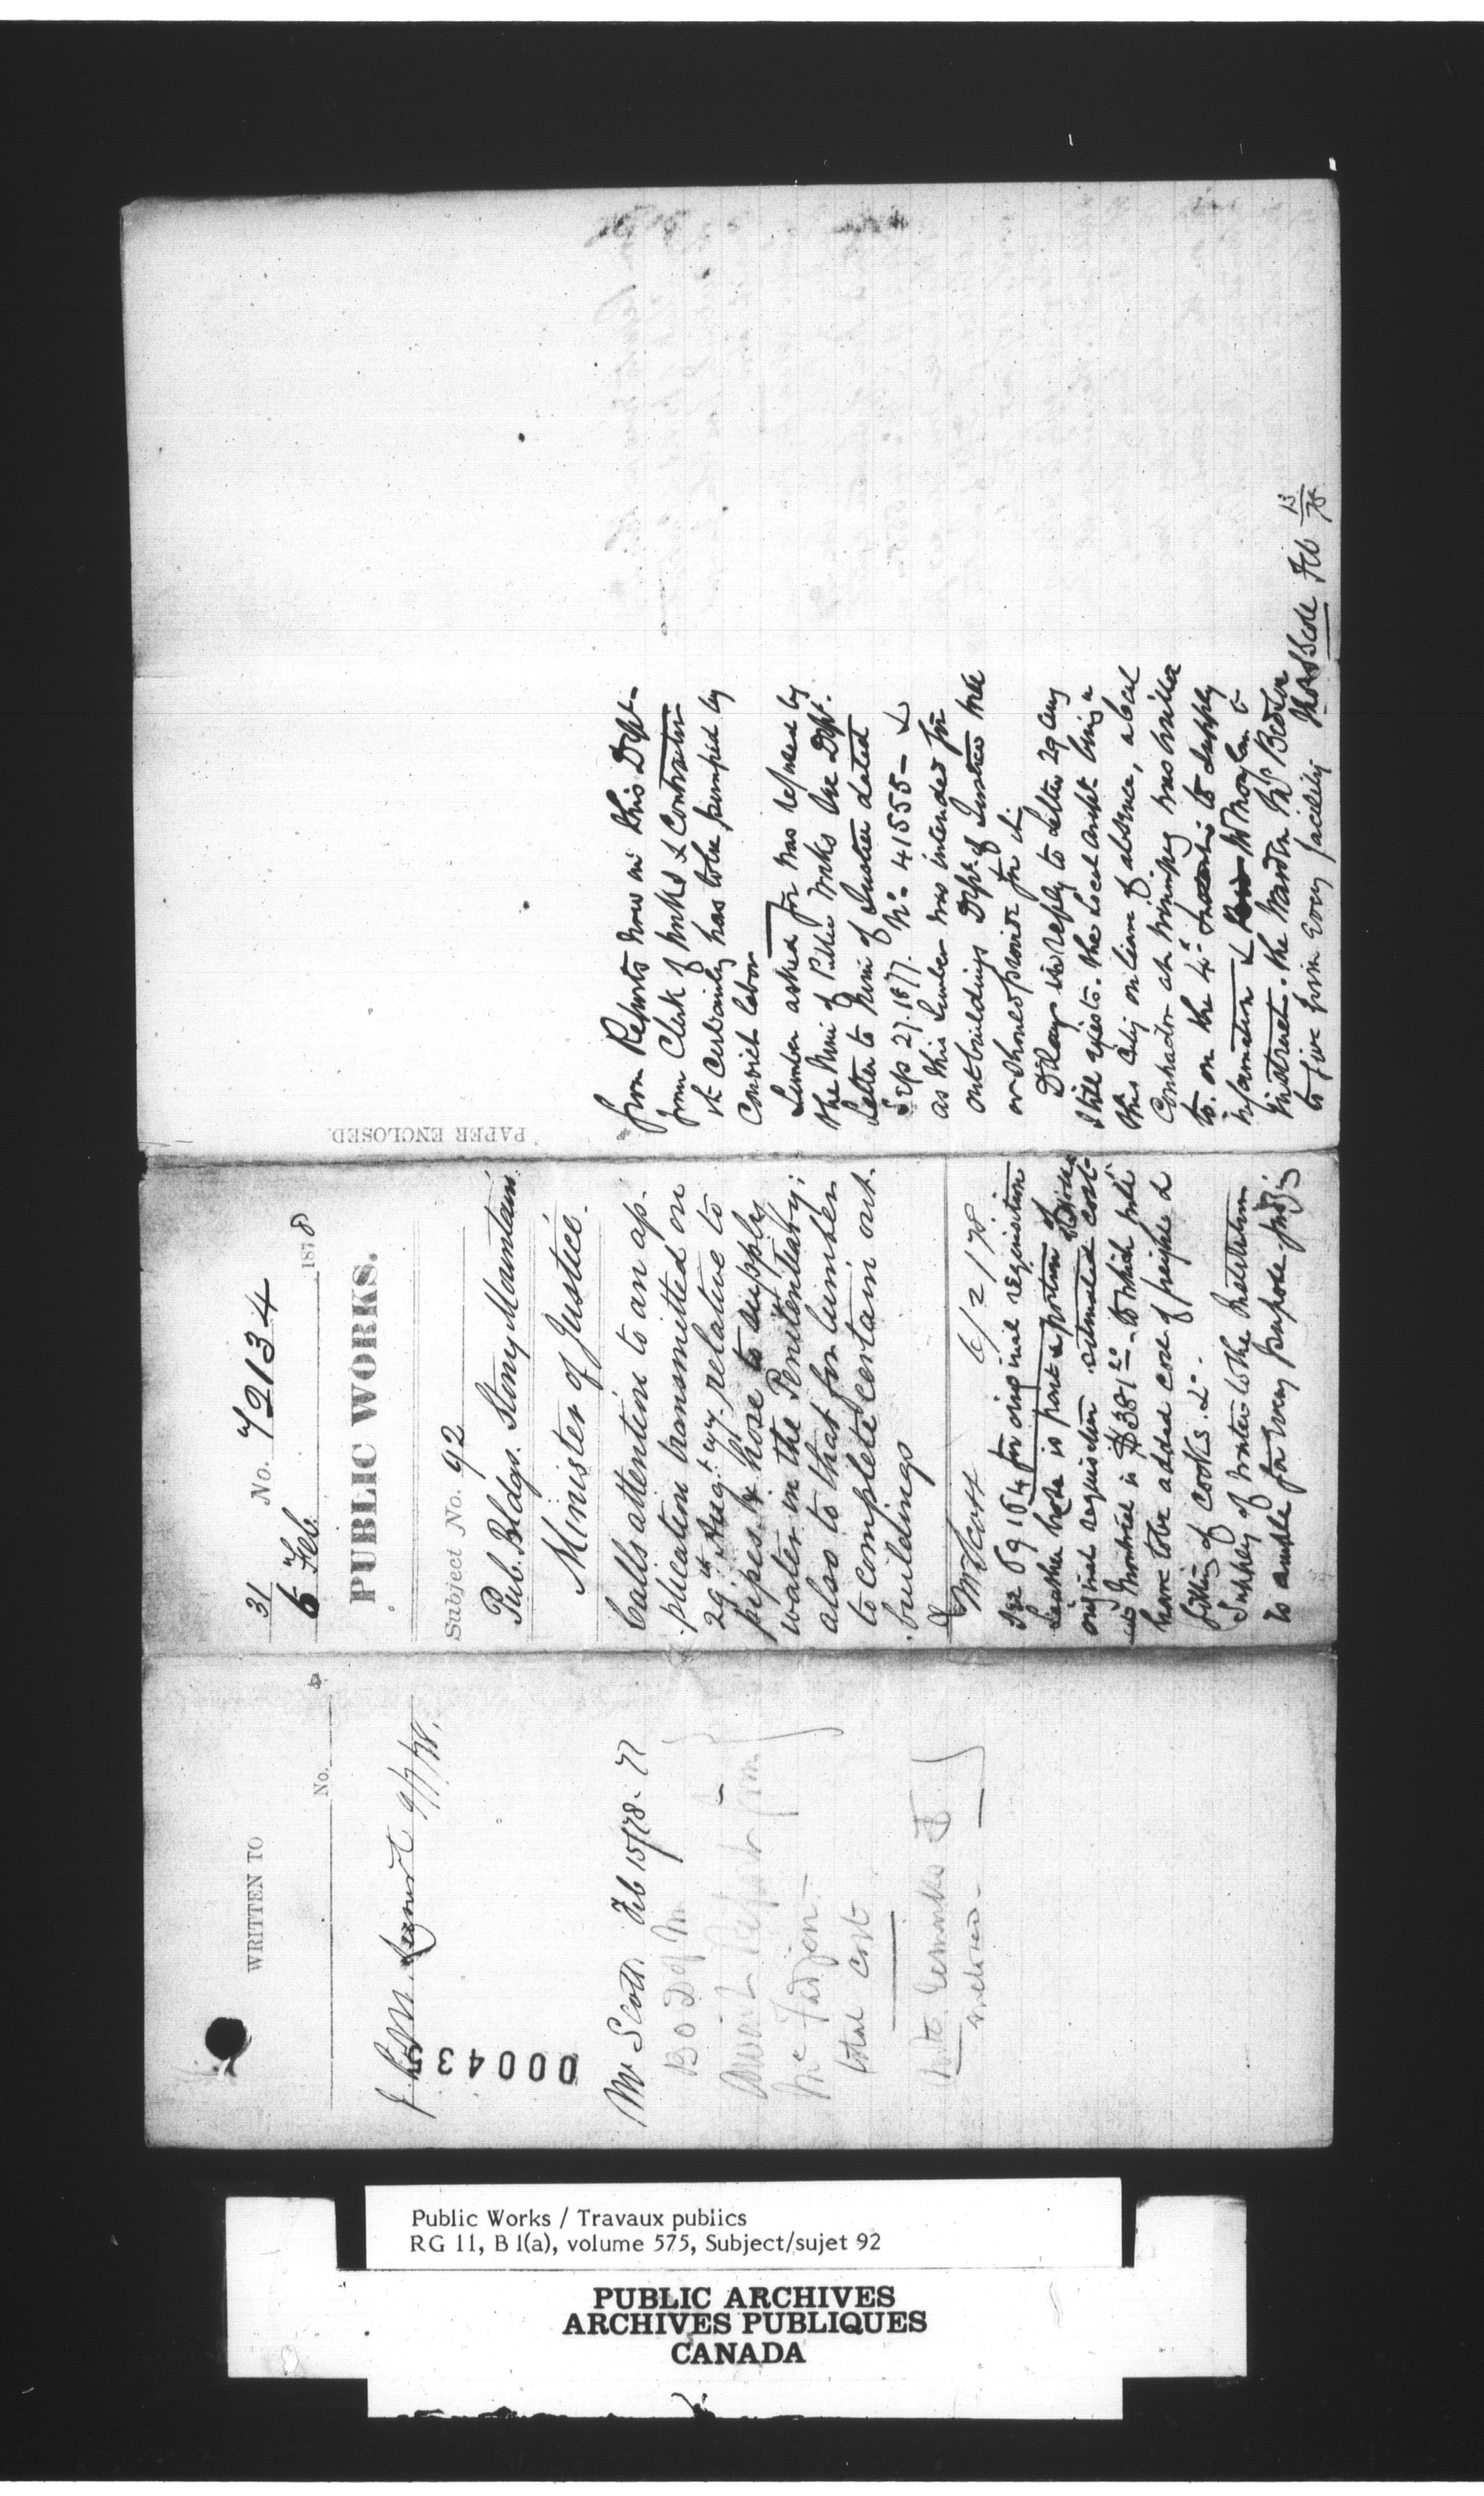 WRITTEN TO
No.
9/7/78.
00043
Mr Scott. Feb 15/78
await Report from
total cost
31
No. 72134
6 Feb. 1878
PUBLIC WORKS.
Subject No. 92
Pub. Bldgs. Stony Mountain.
Minister of Justice.
Calls attention to an ap-
plication transmitted on
29th Augt 77. relative to
pipes & hose to supply
water in the Penitentiary;
also to that for lumber
to complete certain out.
buildings
Mr Scott 6/2/78.
See 69164 for original requisition
Leather hose is part a portion of
original requisition estimated cost
in Montreal is $381.20 to which will
have to be added cost of freight &
fitting of cocks &c.
Supply of water to the Institution
is ample for every purpose judging
PAPER ENCLOSED.
from Reports now in this Dept.
from Clerk of works & Contractor
it certainly has to be pumped by
Convict labor
Lumber asked for was refused by
the Mini of Public Works See Dept.
Letter to Mini of Justice dated
Sep 27. 1877. No 41555 - &
as this lumber was intended for
outbuildings Dept. of Justice
or should provide for it
Delays in reply to Letter 29 Aug
still exists. the local archt being in
this City on leave of absence, a local
Contractor at Winnipeg was written
to. on the 4th to supply
information & Mr Moylan to
instruct. the Warden Mr Bedson
to give him every facility Thos S Scott Feb 13/78
Public Works / Travaux publics
RG 11, B 1(a), volume 575, Subject/sujet 92
PUBLIC ARCHIVES
ARCHIVES PUBLIQUES
CANADA